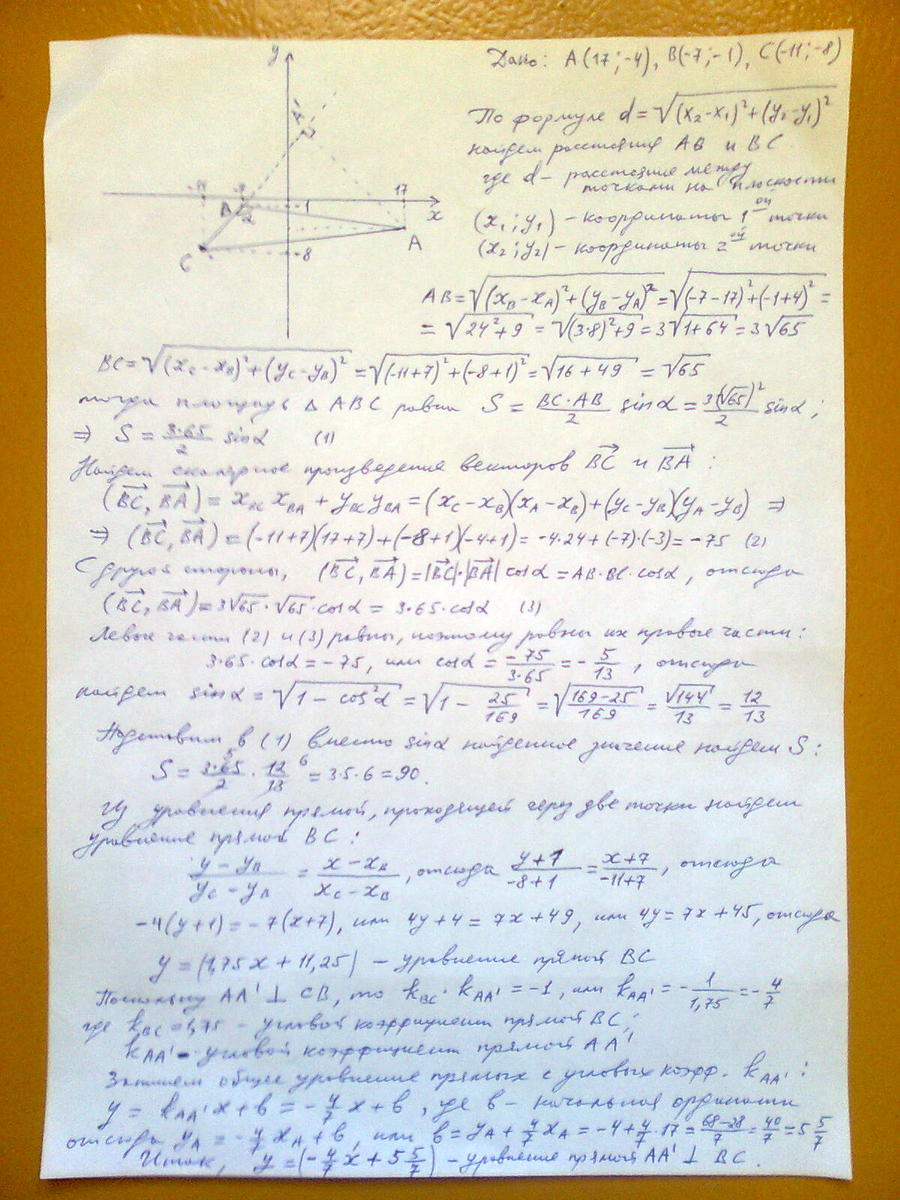 Дано: A(17;-4), B(-7;-1), C(-11;-8)
y
A'
По формуле d=√((x₂-x₁)²+(y₂-y₁)²)
найдем расстояния AB и BC
где d- расстояние между
точками на плоскости
-11 -7 17
B -1 x
2
A
C -8
(x₁;y₁) - координаты 1ой точки
(x₂;y₂) - координаты 2ой точки
AB=√((x_B-x_A)²+(y_B-y_A)²)=√((-7-17)²+(-1+4)²)=
=√(24²+9)=√((3·8)²+9)=3√(1+64)=3√65
BC=√((x_C-x_B)²+(y_C-y_B)²)=√((-11+7)²+(-8+1)²)=√(16+49)=√65
тогда площадь Δ ABC равна S = BC·AB/2 sinα = 3(√65)²/2 sinα;
⇒ S = 3·65/2 sinα (1)
Найдем скалярное произведение векторов BC и BA:
(BC, BA) = x_BC x_BA + y_BC y_BA = (x_C-x_B)(x_A-x_B)+(y_C-y_B)(y_A-y_B) ⇒
⇒ (BC, BA) = (-11+7)(17+7)+(-8+1)(-4+1)= -4·24+(-7)·(-3)= -75 (2)
С другой стороны, (BC, BA)=|BC|·|BA| cosα = AB·BC·cosα, отсюда
(BC, BA)=3√65·√65·cosα = 3·65·cosα (3)
Левые части (2) и (3) равны, поэтому равны их правые части:
3·65·cosα=-75, или cosα = -75/3·65 = -5/13, отсюда
найдем sinα = √(1-cos²α) = √(1-25/169) = √((169-25)/169) = √144/13 = 12/13
Подставим в (1) вместо sinα найденное значение найдем S:
S = 3·65/2 · 12/13 = 3·5·6 = 90.
5 6
Из уравнения прямой, проходящей через две точки найдем
уравнение прямой BC:
(y-y_B)/(y_C-y_B) = (x-x_B)/(x_C-x_B), отсюда (y+1)/(-8+1) = (x+7)/(-11+7), отсюда
-4(y+1)=-7(x+7), или 4y+4=7x+49, или 4y=7x+45, отсюда
y=(1,75x+11,25) - уравнение прямой BC
Поскольку AA'⊥CB, то k_BC·k_AA'=-1, или k_AA'=-1/1,75=-4/7
где k_BC=1,75 - угловой коэффициент прямой BC;
k_AA' - угловой коэффициент прямой AA'
Запишем общее уравнение прямых с угловых коэфф. k_AA':
y = k_AA' x+b = -4/7 x+b, где b- начальная ордината
отсюда y_A = -4/7 x_A+b, или b=y_A+4/7 x_A=-4+4/7·17=(68-28)/7=40/7=5 5/7
Итак, y=(-4/7 x+5 5/7) - уравнение прямой AA'⊥BC.